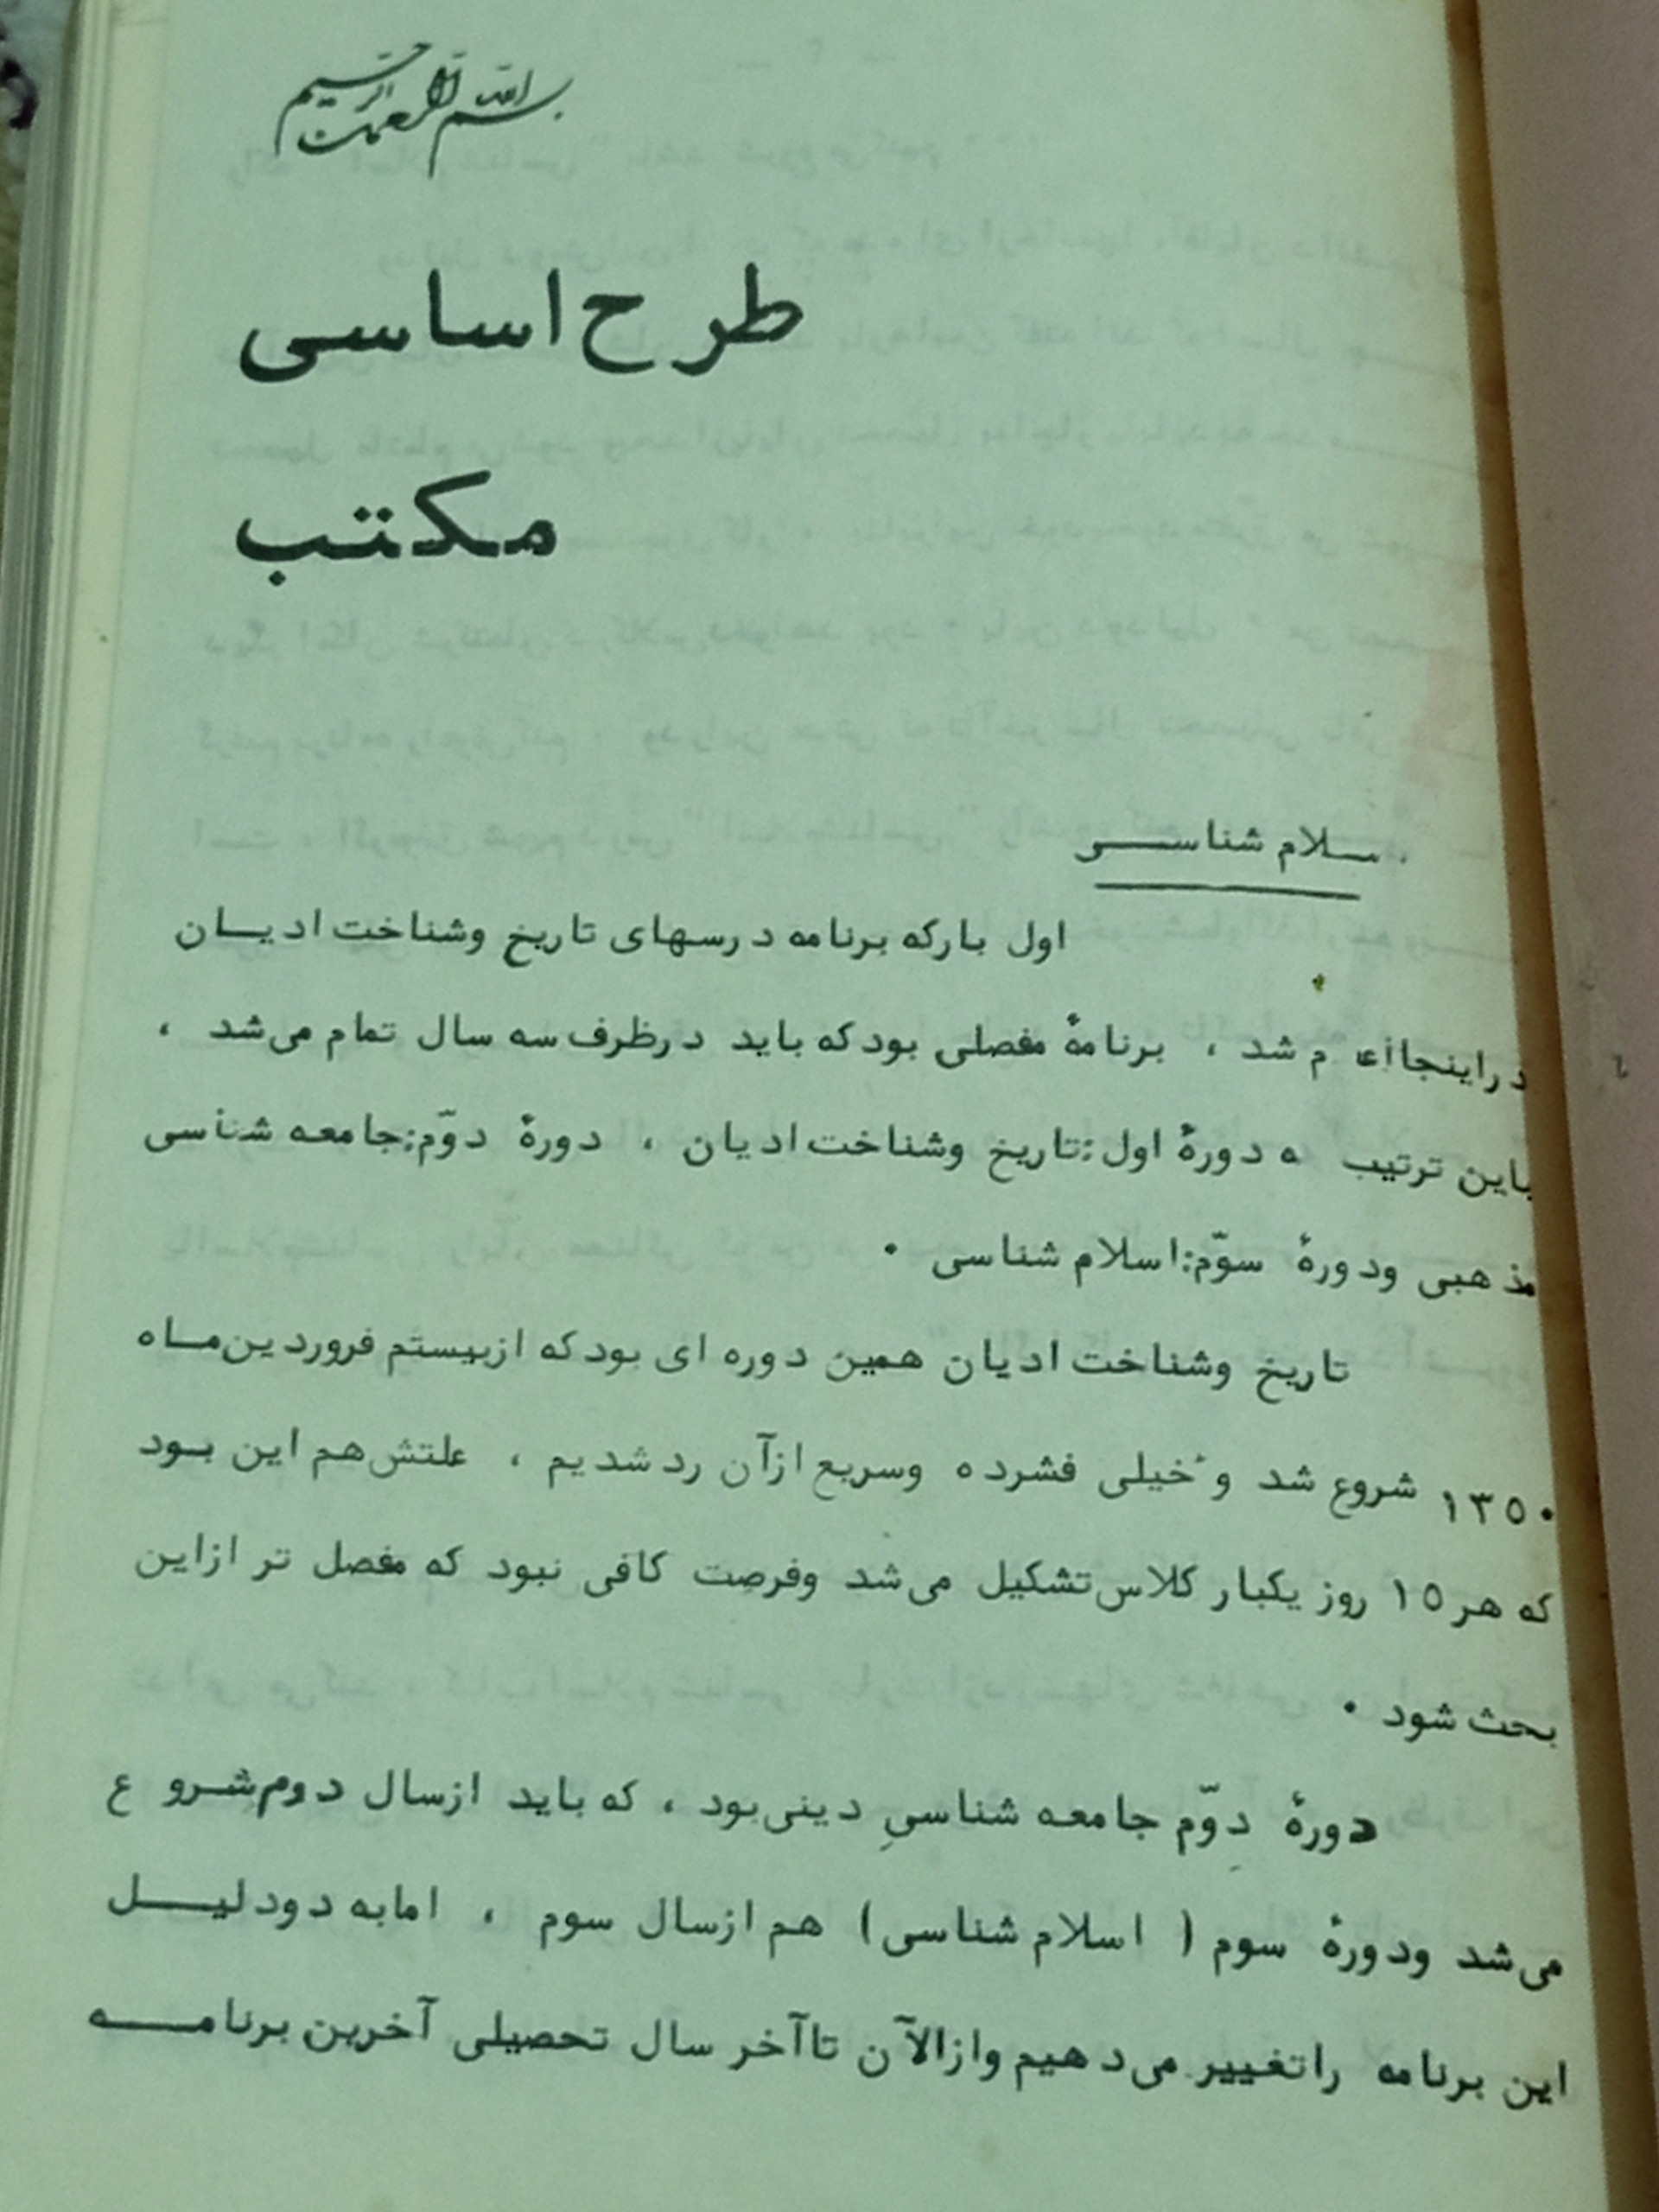 بسم الله الرحمن الرحیم
طرح اساسی
مکتب
سلام شناسی
اول بارکه برنامه درسهای تاریخ وشناخت ادیان
دراینجا م شد ، برنامهٔ مفصلی بودکه باید درظرف سه سال تمام می‌شد ،
باین ترتیب ه دورهٔ اول:تاریخ وشناخت ادیان ، دورهٔ دوّم:جامعه شناسی
مذهبی ودورهٔ سوّم:اسلام شناسی .
تاریخ وشناخت ادیان همین دوره ای بودکه ازبیستم فروردین‌ماه
۱۳۵۰ شروع شد و خیلی فشرده وسریع ازآن ردشدیم ، علتش‌هم این بود
که هر ۱۵ روز یکبار کلاس‌تشکیل می‌شد وفرصت کافی نبود که مفصل تر ازاین
بحث شود .
دورهٔ دوّم جامعه شناسیِ دینی‌بود ، که باید ازسال دوم‌شروع
می‌شد ودورهٔ سوم ( اسلام شناسی ) هم ازسال سوم ، امابه دودلیل
این برنامه راتغییر می‌دهیم وازالآن تاآخر سال تحصیلی آخرین برنامه